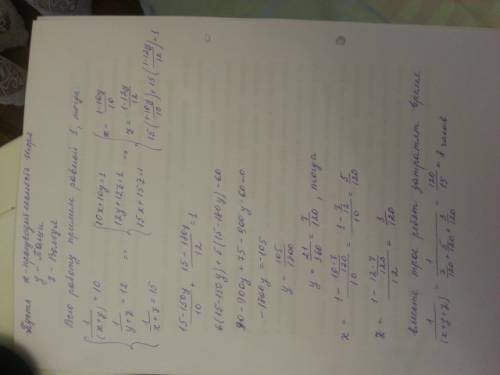 Пусть x - производительность Игоря
y - Паши
z - Володи
Всю работу примем равной 1, тогда
{ 1/(x+y) = 10 => { 10x+10y=1 => { x = (1-10y)/10
1/(y+z) = 12 12y+12z=1 z = (1-12y)/12
1/(x+z) = 15 15x+15z=1 15((1-10y)/10)+15((1-12y)/12)=1
(15-150y)/10 + (15-180y)/12 = 1
6(15-150y)+5(15-180y)=60
90-900y+75-900y-60=0
-1800y=-105
y = 105/1800
y = 21/360 = 7/120, тогда
x = (1-10·7/120)/10 = (1-7/12)/10 = 5/120
z = (1-12·7/120)/12 = 3/120
вместе трое ребят затратят время
1/(x+y+z) = 1/(7/120+5/120+3/120) = 120/15 = 8 часов